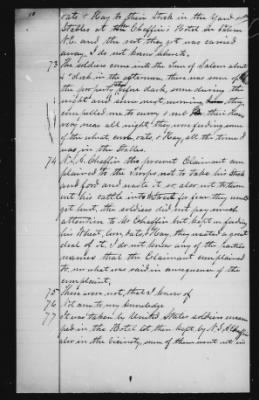 oats & Hay to their stock in the Yard and
Stables at the Chaffin's Hotel in Salem
N.C and the rest they got was carried
away, I do not know where.
73 The soldiers came into the Town of Salem about
4 o'clock in the afternoon there was some of the
the property before dark, some during the
night and some next morning they
compelled me to carry & me their Horses
were mess all night they were feeding some
of the wheat, corn, oats, & Hay, all the time I
was in the Stables.
74 N.S. A. Chaffin the present Claimant com
plained to the Troops not to take his Stock
and food and waste it or else not to turn
out his cattle into Stock for fear they would
get hurt, the soldiers did not pay much
attention to Mr Chaffin but kept on feeding
his Wheat, Corn, oats, & Hay, they wasted a great
deal of it, I do not know any of the parties
names that the Claimant complained
to, nor what was said in consequence of the
complaint,
75 There were not, that I know of
76 Not any to my knowledge
77 It was taken by United States soldiers encam
ped in the Hotel lot, then kept by N.S. A Chaffin
also in the vicinity, some of them went out in